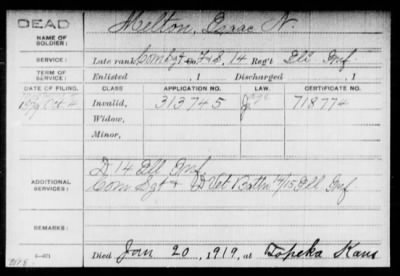 DEAD
NAME OF SOLDIER: Melton, Isaac N.
SERVICE: Late rank, Com Sgt F&S, 14 Reg't Ill Inf
TERM OF SERVICE: Enlisted , 1 Discharged , 1
DATE OF FILING. CLASS. APPLICATION NO. LAW. CERTIFICATE NO.
Invalid, 313745 718774
Widow,
Minor,
D 14 Ill Inf
ADDITIONAL SERVICES: Com Sgt + D Vet Battn 14/15 Ill Inf
REMARKS:
Died Jan 20, 1919, at Topeka Kans